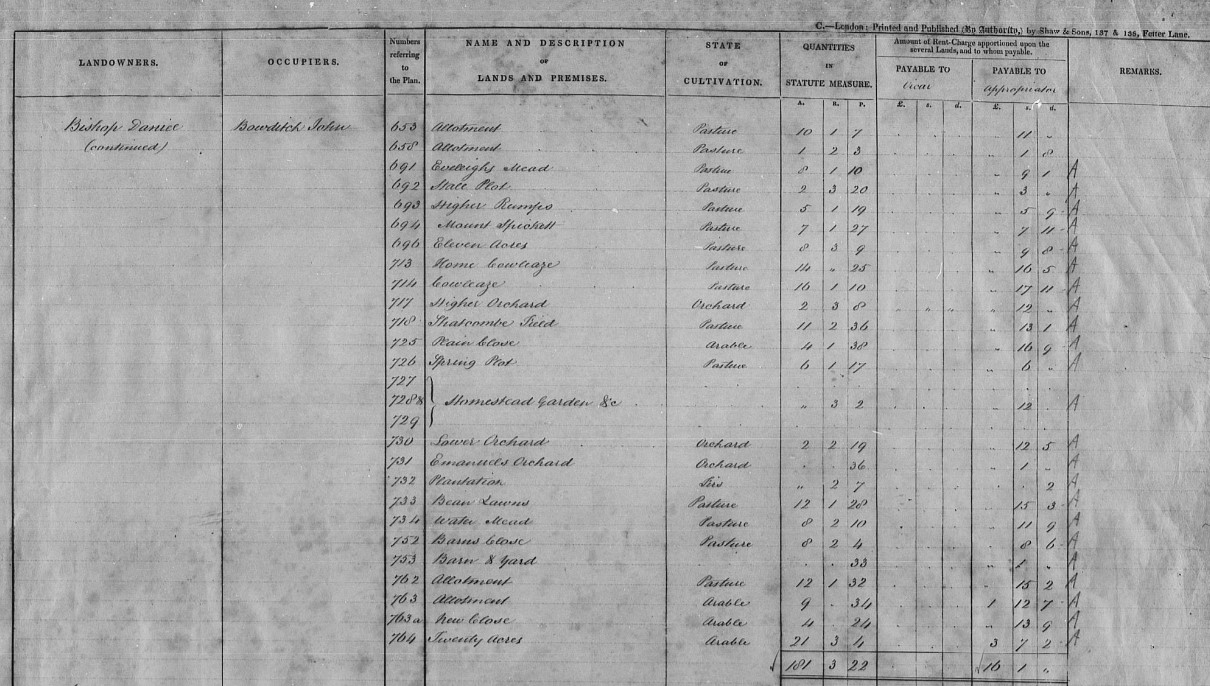 C.—London: Printed and Published (By Authority,) by Shaw & Sons, 137 & 138, Fetter Lane.
LANDOWNERS. OCCUPIERS. Numbers referring to the Plan. NAME AND DESCRIPTION OF LANDS AND PREMISES. STATE OF CULTIVATION. QUANTITIES IN STATUTE MEASURE. Amount of Rent-Charge apportioned upon the several Lands, and to whom payable. REMARKS.
PAYABLE TO Vicar PAYABLE TO Appropriator
A. R. P. £. s. d. £. s. d.
Bishop Daniel Bowditch John 653 Allotment Pasture 10 1 7 11 "
(continued) 658 Allotment Pasture 1 2 3 " 1 8
691 Eveleighs Mead Pasture 8 1 10 " 9 1 A
692 Stall Plot Pasture 2 3 20 " 3 " A
693 Higher Rumps Pasture 5 1 19 " 5 9 A
694 Mount Spickett Pasture 7 1 27 " 7 11 A
696 Eleven Acres Pasture 8 3 9 " 9 8 A
713 Home Cowleaze Pasture 14 " 25 " 16 5 A
714 Cowleaze Pasture 16 1 10 " 17 11 A
717 Higher Orchard Orchard 2 3 8 " " " " 12 " A
718 Thatcombe Field Pasture 11 2 36 " 13 1 A
725 Plain Close Arable 4 1 38 " 16 9 A
726 Spring Plot Pasture 6 1 17 " 6 " A
727
728 & Homestead Garden &c " 3 2 " 12 . A
729
730 Lower Orchard Orchard 2 2 19 " 12 5 A
731 Emanuels Orchard Orchard . . 36 " 1 " A
732 Plantation Firs " 2 7 . 2 A
733 Bean Lawns Pasture 12 1 28 " 15 3 A
734 Water Mead Pasture 8 2 10 " 11 9 A
752 Barns Close Pasture 8 2 4 " 8 6 A
753 Barn & Yard . . 33 " 1 " A
762 Allotment Pasture 12 1 32 " 15 2 A
763 Allotment Arable 9 . 34 1 12 7 A
763a New Close Arable 4 . 24 " 13 9 A
764 Twenty Acres Arable 21 3 4 3 7 2 A
181 3 22 16 1 "